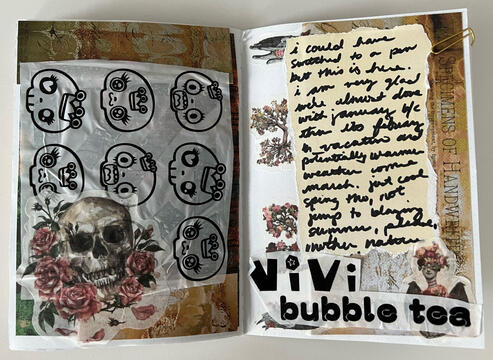 i could have
switched to a pen
but this is here.
i am very glad
we're almost done
with january b/c
then its february
in vacation and
potentially warmer
weather come
march. just cool
spring tho, not
jump to blazing
summer, please,
mother nature
SPECIMENS OF HANDWRI
ViVi
bubble tea